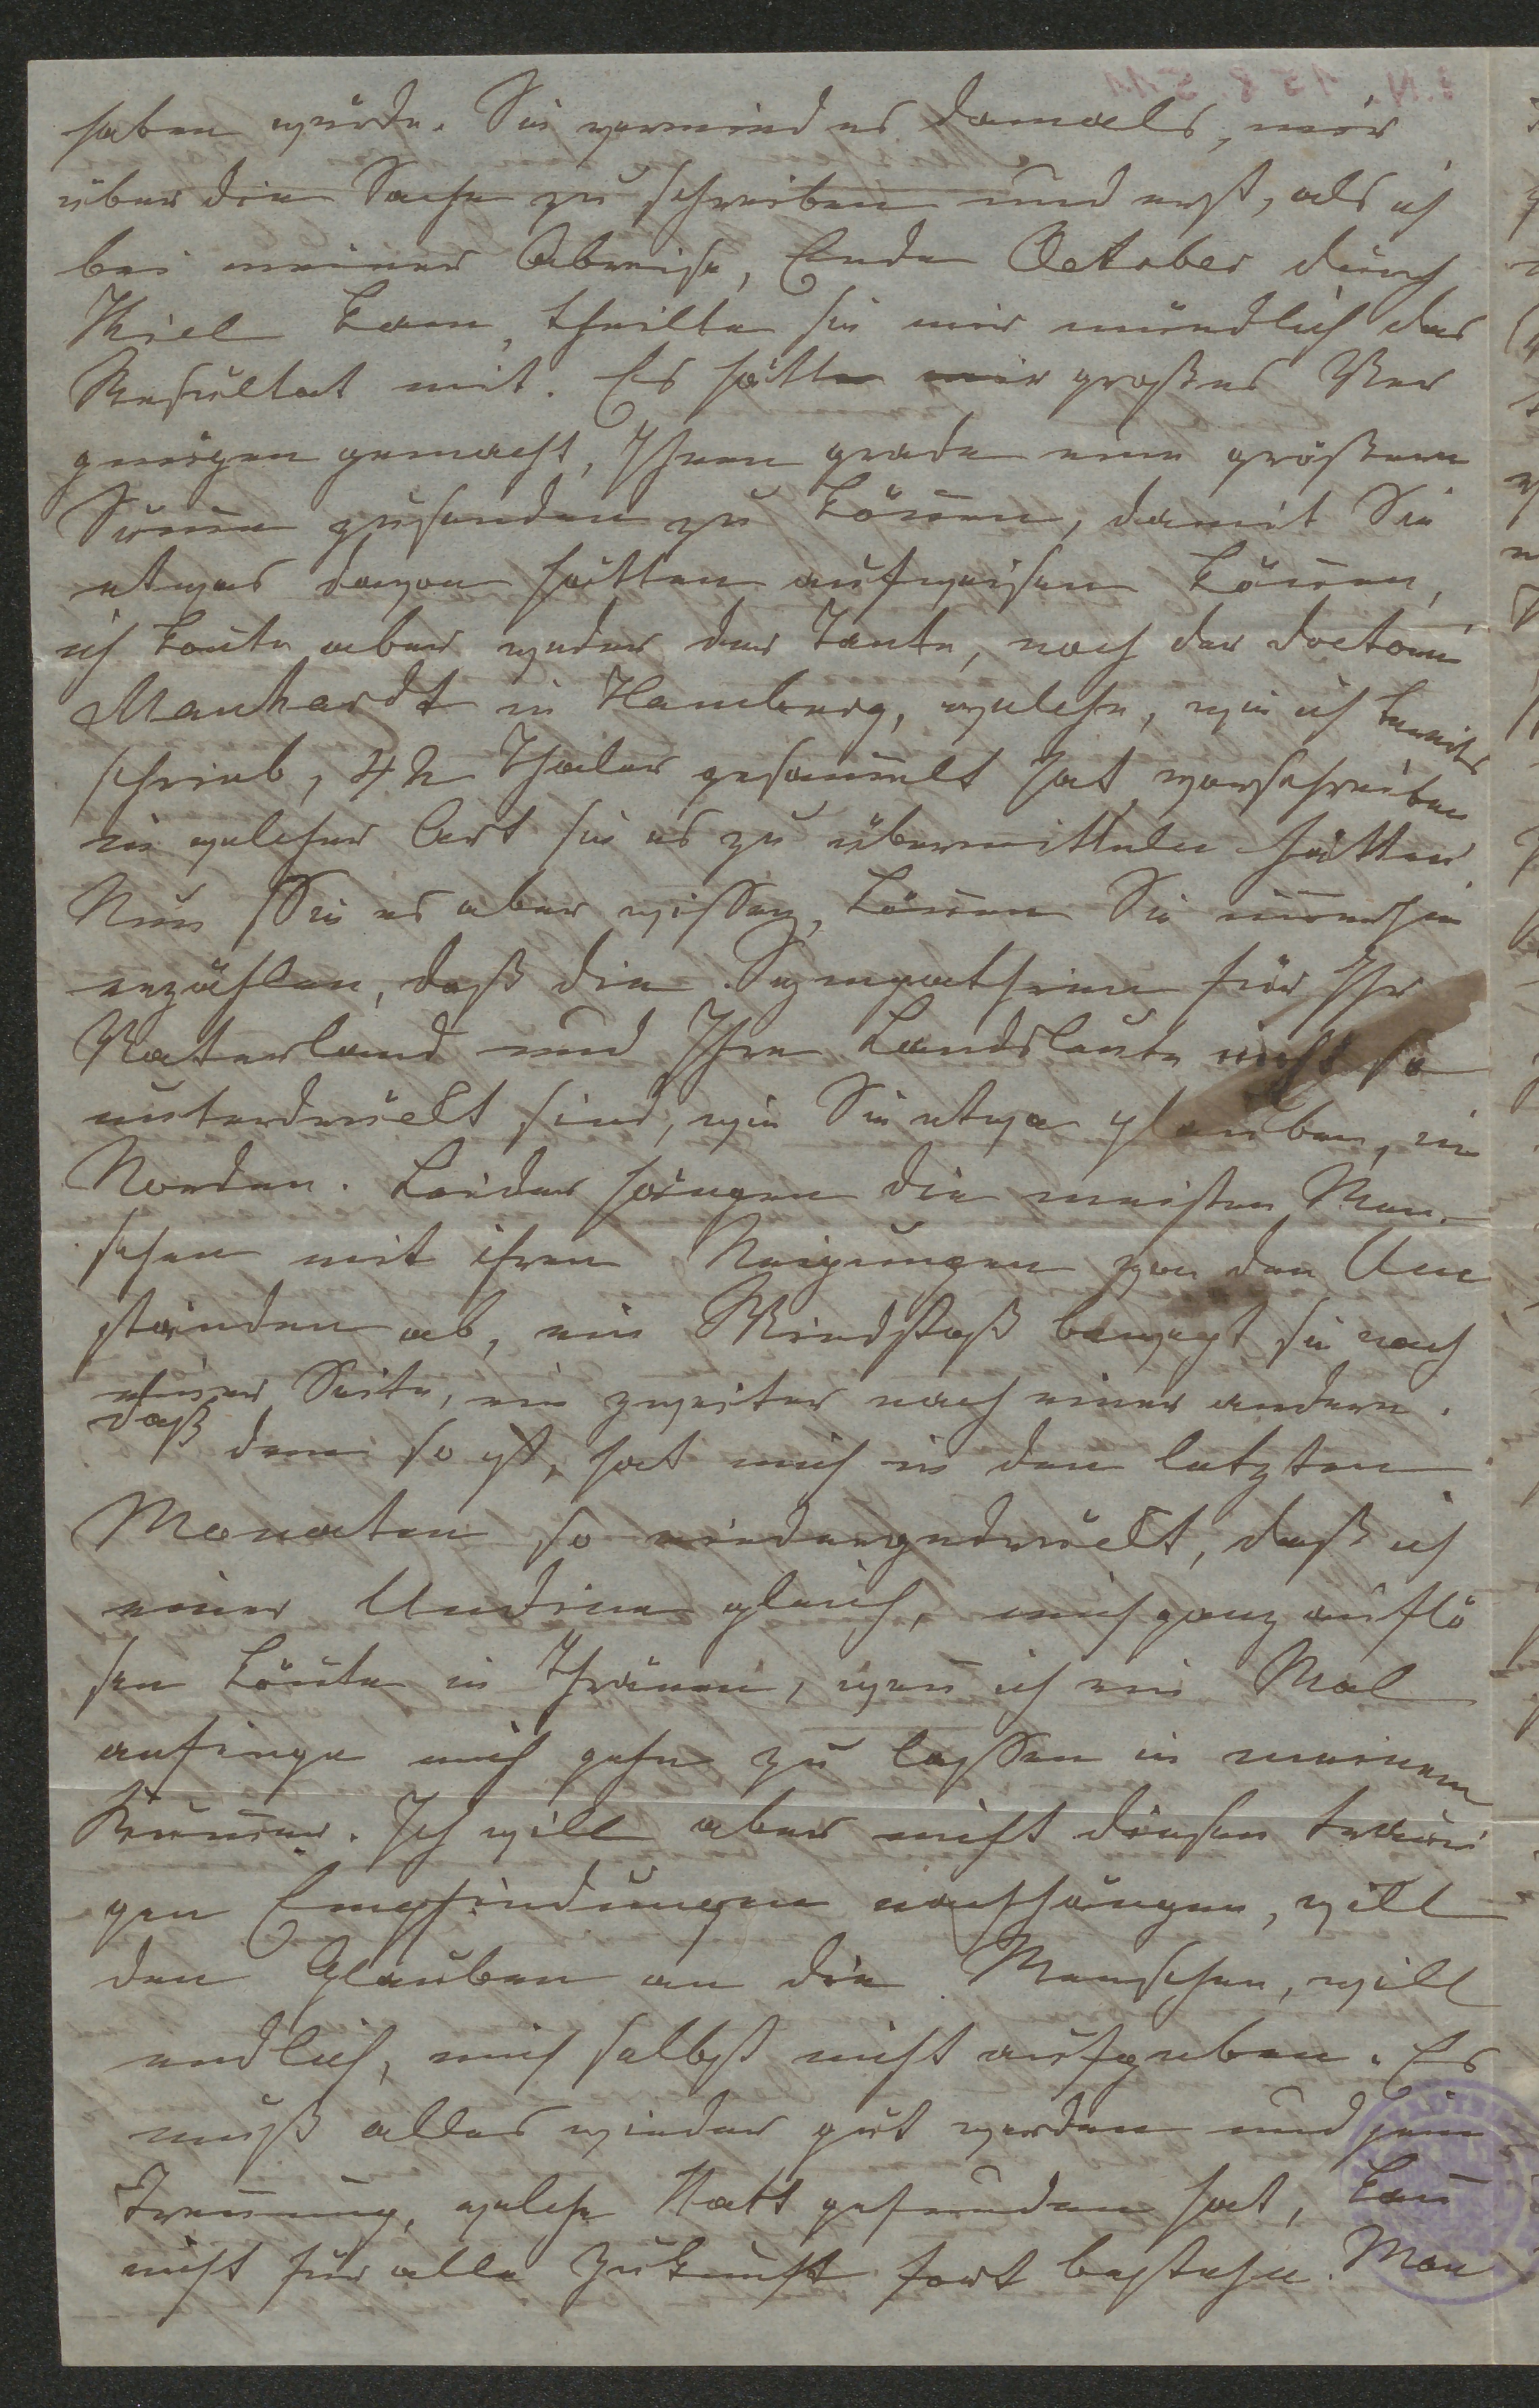 haben würde. Sie vermied es damals, mir
über die Sache zu schreiben und erst, als ich
bei meiner Abreise, Ende October durch
Kiel kam, theilte sie mir mündlich das
Resultat mit. Es hätte mir großes Ver
gnügen gemacht, Ihnen grade eine größere
Sum̅e zusenden zu kön̅en, damit Sie
etwas davon hätten aufweisen kön̅en,
ich kon̅te aber weder der Tante, noch der Doctorin
Manhardt in Hamburg, welche, wie ich bereits
schrieb, 42 Thaler gesam̅elt hat vorschreiben
in welcher Art sie es zu übermitteln hätten.
Nun Sie es aber wissen, kön̅en Sie im̅erhin
erzählen, daß die Sympathieen für Ihr
Vaterland und Ihre Landsleute nicht so
unterdrückt sind, wie Sie etwa glauben, im
Norden. Leider hängen die meisten Men-
schen mit ihren Neigungen von den Um
ständen ab, ein Windstoß bewegt sie nach
einer Seite, ein zweiter nach einer andern.
daß dem so ist, hat mich in den letzten
Monaten so niedergedrückt, daß ich
einer Undine gleich, mich ganz auflö
sen kön̅te in Thränen, wen̅ ich ein Mal
anfinge mich gehn zu lassen in meinem
Kum̅er. Ich will aber nicht diesen trauri
gen Empfindungen nachhängen, will
den Glauben an die Menschen, will
endlich, mich selbst nicht aufgeben. Es
muß alles wieder gut werden und jene
Tren̅ung, welche Statt gefunden hat, kan̅
nicht für alle Zukunft fort bestehn. Man